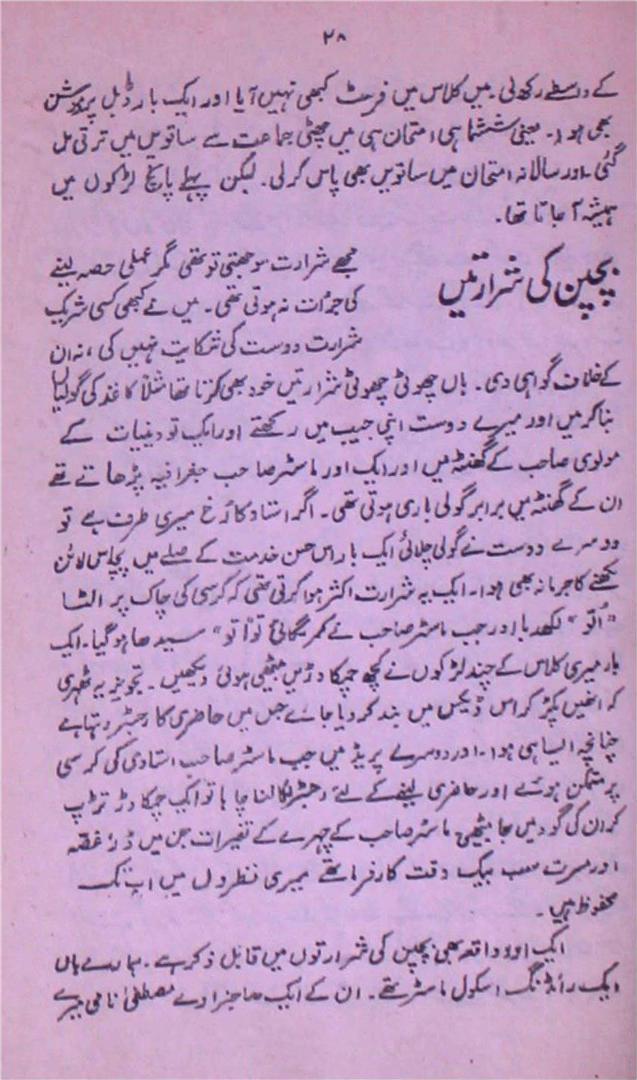 ۲۸
کے واسطے رکھ لی۔ میں کلاس میں فرسٹ کبھی نہیں آیا اور ایک بار ڈبل پروموشن
بھی ہوا۔ یعنی ششماہی امتحان ہی میں چھٹی جماعت سے ساتویں میں ترقی مل
گئی اور سالانہ امتحان میں ساتویں بھی پاس کر لی۔ لیکن پہلے پانچ لڑکوں میں
ہمیشہ آ جاتا تھا۔
بچپن کی شرارتیں
مجھے شرارت سوجھتی تو تھی مگر عملی حصہ لینے
کی جرأت نہ ہوتی تھی۔ میں نے کبھی کسی شریک
شرارت دوست کی شکایت نہیں کی، نہ ان
کے خلاف گواہی دی۔ ہاں چھوٹی چھوٹی شرارتیں خود بھی کرتا تھا مثلاً کاغذ کی گولیاں
بنا کر میں اور میرے دوست اپنی جیب میں رکھتے اور ایک تو دینیات کے
مولوی صاحب کے گھنٹہ میں اور ایک اور ماسٹر صاحب جغرافیہ پڑھاتے تھے
ان کے گھنٹہ میں برابر گولی باری ہوتی تھی۔ اگر استاد کا رخ میری طرف ہے تو
دوسرے دوست نے گولی چلائی ایک بار اس حسن خدمت کے صلے میں پچاس لائن
لکھنے کا جرمانہ بھی ہوا۔ ایک یہ شرارت اکثر ہوا کرتی تھی کہ کرسی کی چاک پر الٹا
"اُلّو" لکھ دیا اور جب ماسٹر صاحب نے کمر لگائی تو "اُلّو" سیدھا ہو گیا۔ ایک
بار میری کلاس کے چند لڑکوں نے کچھ چمگادڑیں بیٹھی ہوئی دیکھیں۔ تجویز یہ ٹھہری
کہ انھیں پکڑ کر اس ڈیکس میں بند کر دیا جائے جس میں حاضری کا رجسٹر رہتا ہے
چنانچہ ایسا ہی ہوا۔ اور دوسرے پریڈ میں جب ماسٹر صاحب استادی کی کرسی
پر متمکن ہوئے اور حاضری لینے کے لئے رجسٹر نکالنا چاہا تو ایک چمگادڑ تڑپ
کر ان کی گود میں جا بیٹھی۔ ماسٹر صاحب کے چہرے کے تغیرات جن میں ڈر، غصہ
اور مسرت سب بیک وقت کارفرما تھے میری نظروں میں اب تک
محفوظ ہیں۔
ایک اور واقعہ بھی بچپن کی شرارتوں میں قابل ذکر ہے۔ ہمارے ہاں
ایک رائٹنگ اسکول ماسٹر تھے۔ ان کے ایک صاحبزادے مصطفیٰ نامی میرے